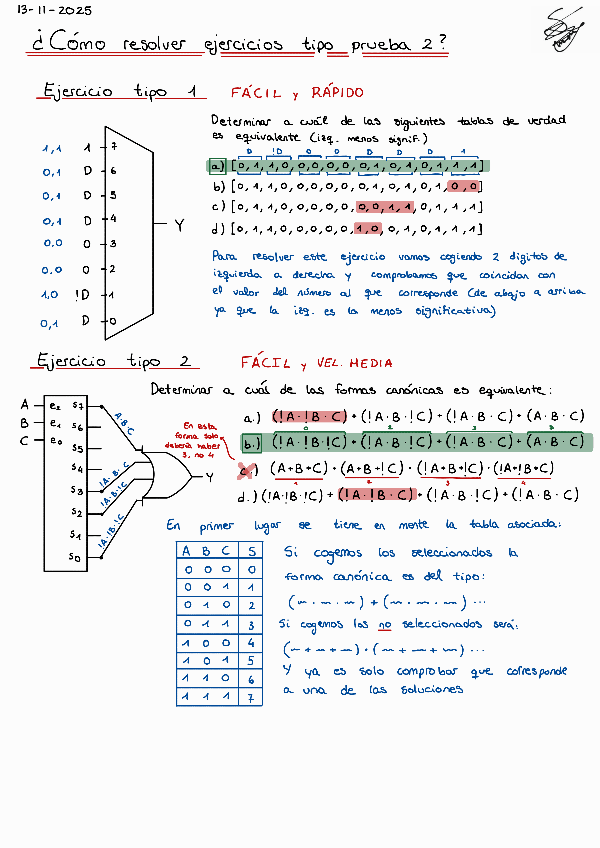 13-11-2025
¿Cómo resolver ejercicios tipo prueba 2?
Ejercicio tipo 1 FÁCIL y RÁPIDO
Determinar a cuál de las siguientes tablas de verdad
es equivalente (izq. menos signif.)
D !D 0 0 D D D 1
a) [0,1,1,0,0,0,0,0,0,1,0,1,0,1,1,1]
b) [0,1,1,0,0,0,0,0,0,1,0,1,0,1,0,0]
c) [0,1,1,0,0,0,0,0,0,0,1,1,0,1,1,1]
d) [0,1,1,0,0,0,0,0,1,0,0,1,0,1,1,1]
1,1 1 7
0,1 D 6
0,1 D 5
0,1 D 4
0,0 0 3
0,0 0 2
1,0 !D 1
0,1 D 0
Y
Para resolver este ejercicio vamos cogiendo 2 digitos de
izquierda a derecha y comprobamos que coincidan con
el valor del número al que corresponde (de abajo a arriba
ya que la izq. es la menos significativa)
Ejercicio tipo 2 FÁCIL y VEL. MEDIA
Determinar a cuál de las formas canónicas es equivalente:
A e₂ S7
B e₁ S6
C e₀ S5
S4
S3
S2
S1
S0
A·B·C
!A·B·C
!A·B·!C
!A·!B·!C
Y
En esta
forma solo
debería haber
3, no 4
a.) (!A·!B·C) + (!A·B·!C) + (!A·B·C) + (A·B·C)
0 2 3 8
b.) (!A·!B·!C) + (!A·B·!C) + (!A·B·C) + (A·B·C)
c.) (A+B+C) · (A+!B+C) · (!A+B+!C) · (!A+!B+C)
1 2 3 4
d.) (!A·!B·!C) + (!A·!B·C) + (!A·B·!C) + (A·B·C)
En primer lugar se tiene en mente la tabla asociada:
A B C S
0 0 0 0
0 0 1 1
0 1 0 2
0 1 1 3
1 0 0 4
1 0 1 5
1 1 0 6
1 1 1 7
Si cogemos los seleccionados la
forma canónica es del tipo:
(~·~·~) + (~·~·~) ...
Si cogemos los no seleccionados será:
(~+~+~)·(~+~+~) ...
Y ya es solo comprobar que corresponde
a una de las soluciones